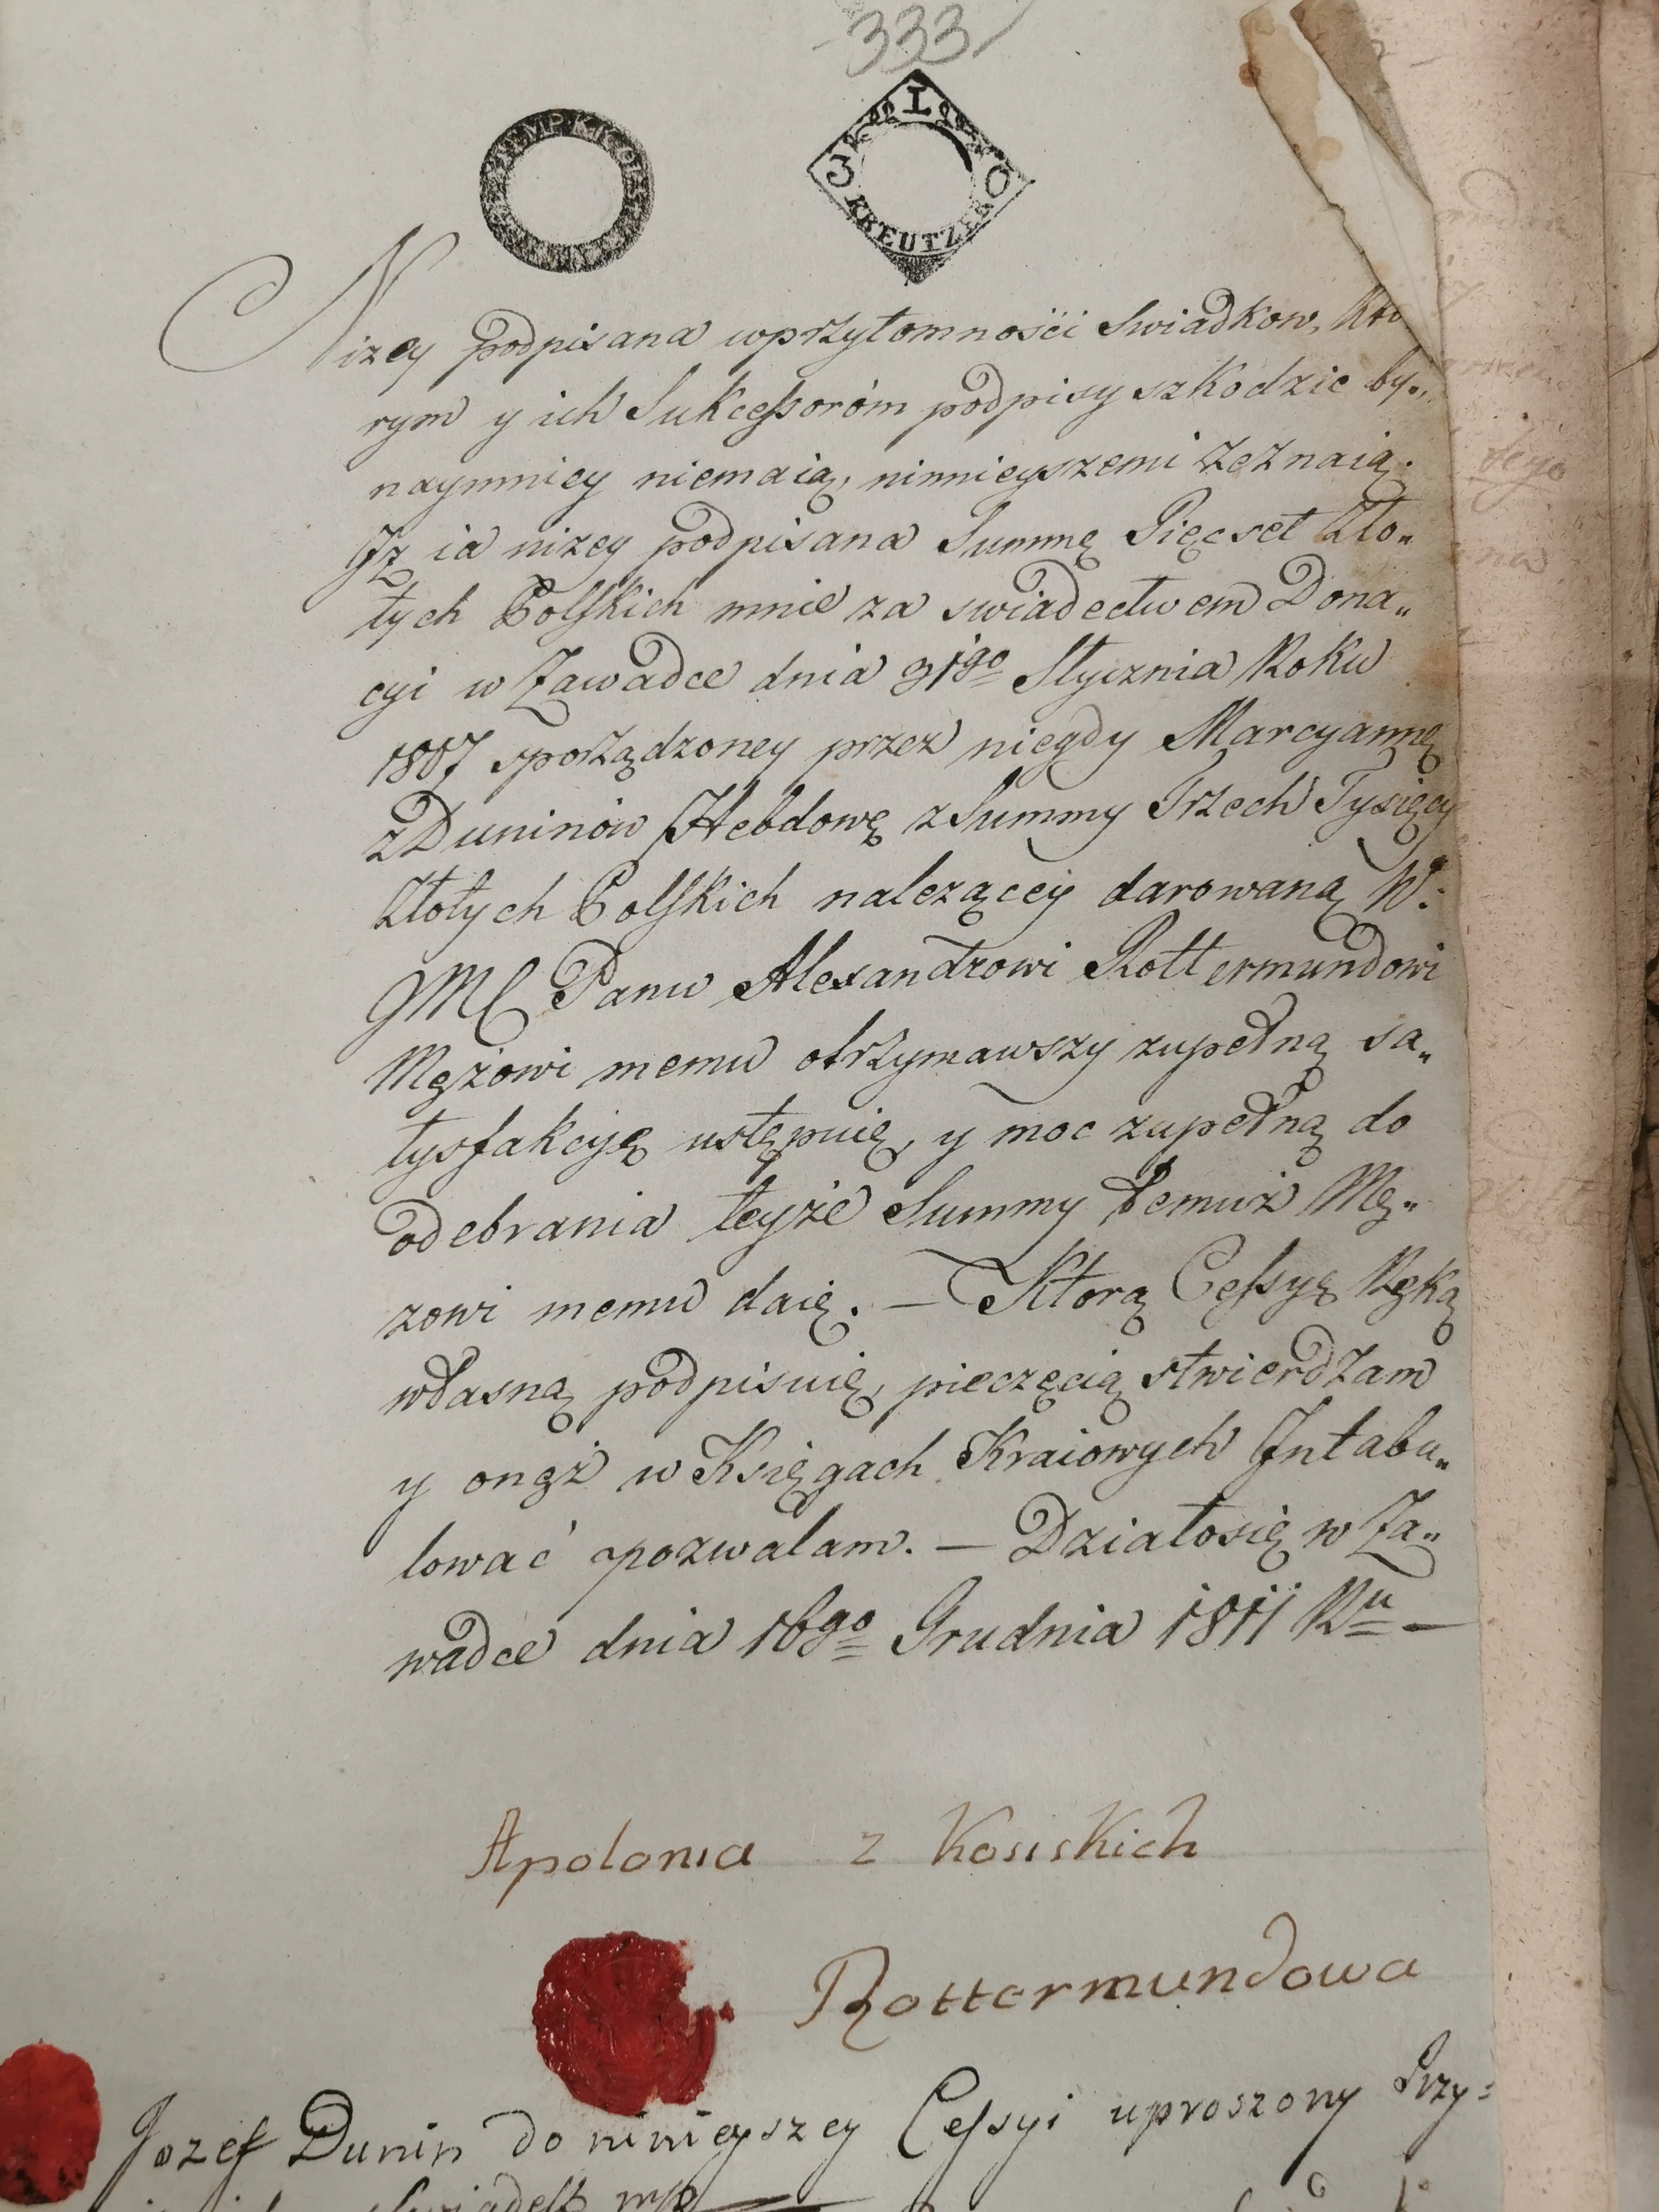 333
STEMP. K. K.
I
3 0
KREUTZER
Nizey podpisana wprzytomności Swiadkow, Kto
rym y ich Sukcessoróm podpisy szkodzic by„
naymniey niemaią, ninnieyszemi zeznaią.
Jż ia nizey podpisana Summę Pięcset Zło„
tych Polskich mnie za swiadectwem Dona„
cyi w Zawadce dnia 31go Stycznia Roku
1807 sporządzoney przez niegdy Marcyannę
z Duninów Hebdowę z Summy Trzech Tysięcy
Złotych Polskich nalezącey darowaną W:
JMC Panu Alexandrowi Rottermundowi
Mężowi memu otrzymawszy zupełną sa„
tysfakcyę ustępuię, y moc zupełną do
odebrania teyże Summy temuż Mę„
zowi memu daię. — Ktorą Cessyę Ręką
własną podpisuię, pieczęcią stwierdzam
y onęż w Księgach Kraiowych Jntabu„
lować pozwalam. — Działosię w Za„
wadce dnia 16go Grudnia 1811 Ru —
Apolonia z Kosiskich
Rottermundowa
Jozef Dunin do ninieyszey Cessyi uproszony Przy=
Swiadek mp